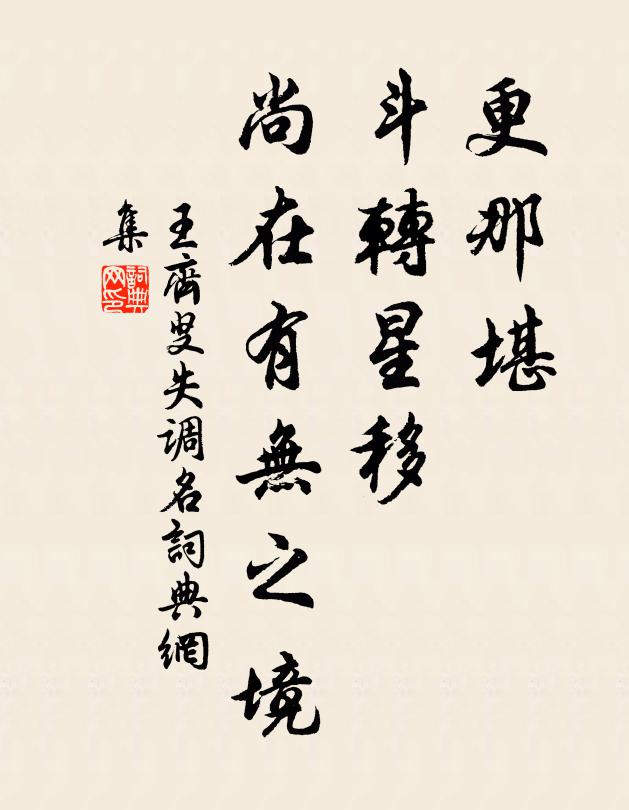 更那堪
斗轉星移
尚在有無之境
王齊叟失调名詞典網
集
詞典
网印